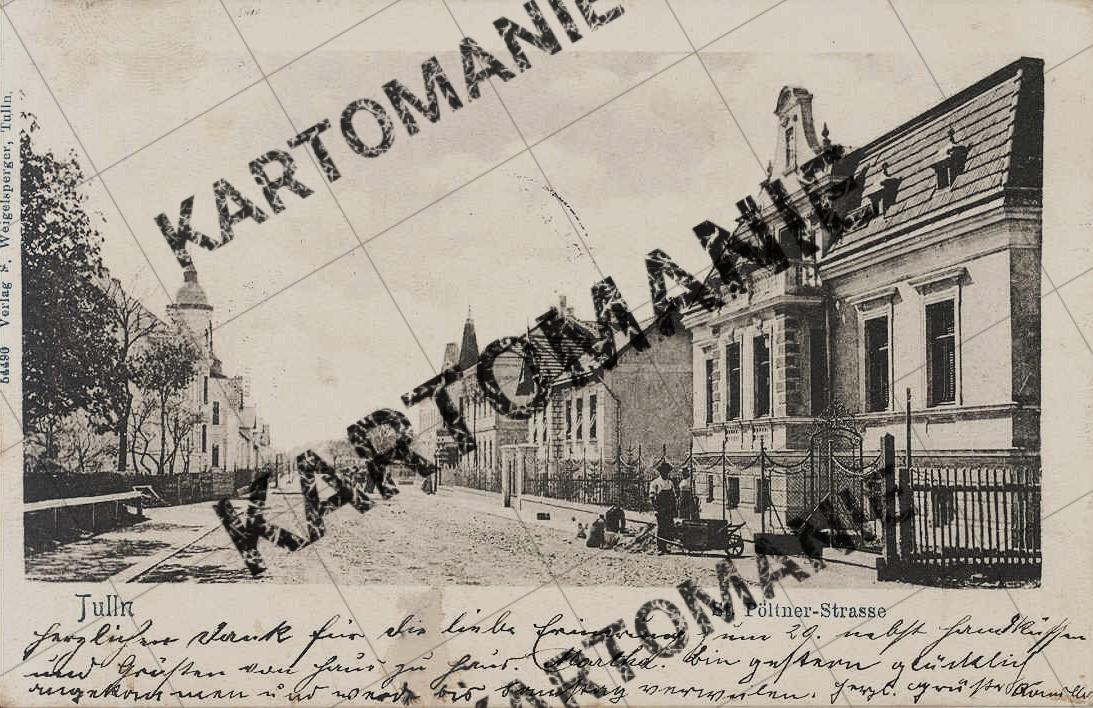 KARTOMANIE
KARTOMANIE
KARTOMANIE
KARTOMANIE
54490 Verlag F. Weigelsperger, Tulln.
Tulln
St. Pöltner-Strasse
herzlichen Dank für die liebe Erinnerung zum 29. nebst Handküssen
und Grüßen von Haus zu Haus. Martha. Bin gestern glücklich
angekommen und werde bis Samstag verweilen. herzl. Grüße